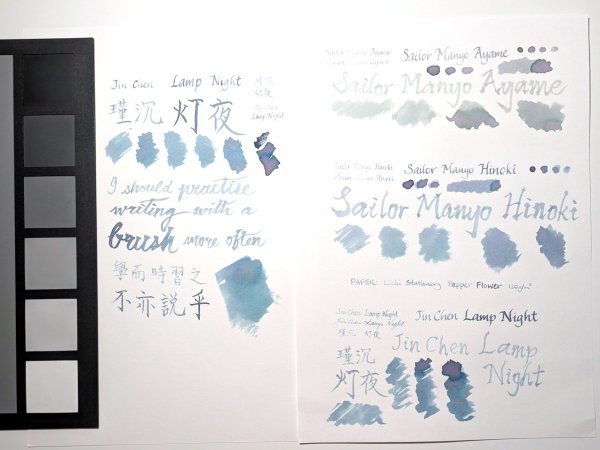 Jin Chen Lamp Night
瑾沉
灯夜
瑾沉 灯夜
Jin Chen
Lamp Night
I should practise
writing with a
brush more often
學而時習之
不亦説乎
Sailor Manyo Ayame
Sailor Manyo Ayame
Sailor Manyo Ayame
Sailor Manyo Hinoki
Sailor Manyo Hinoki
Sailor Manyo Hinoki
PAPER: Lichi Stationery Pepper Flower
Jin Chen Lamp Night
Jin Chen Lamp Night
瑾沉 灯夜
Jin Chen Lamp Night
瑾沉
灯夜
Jin Chen Lamp
Night